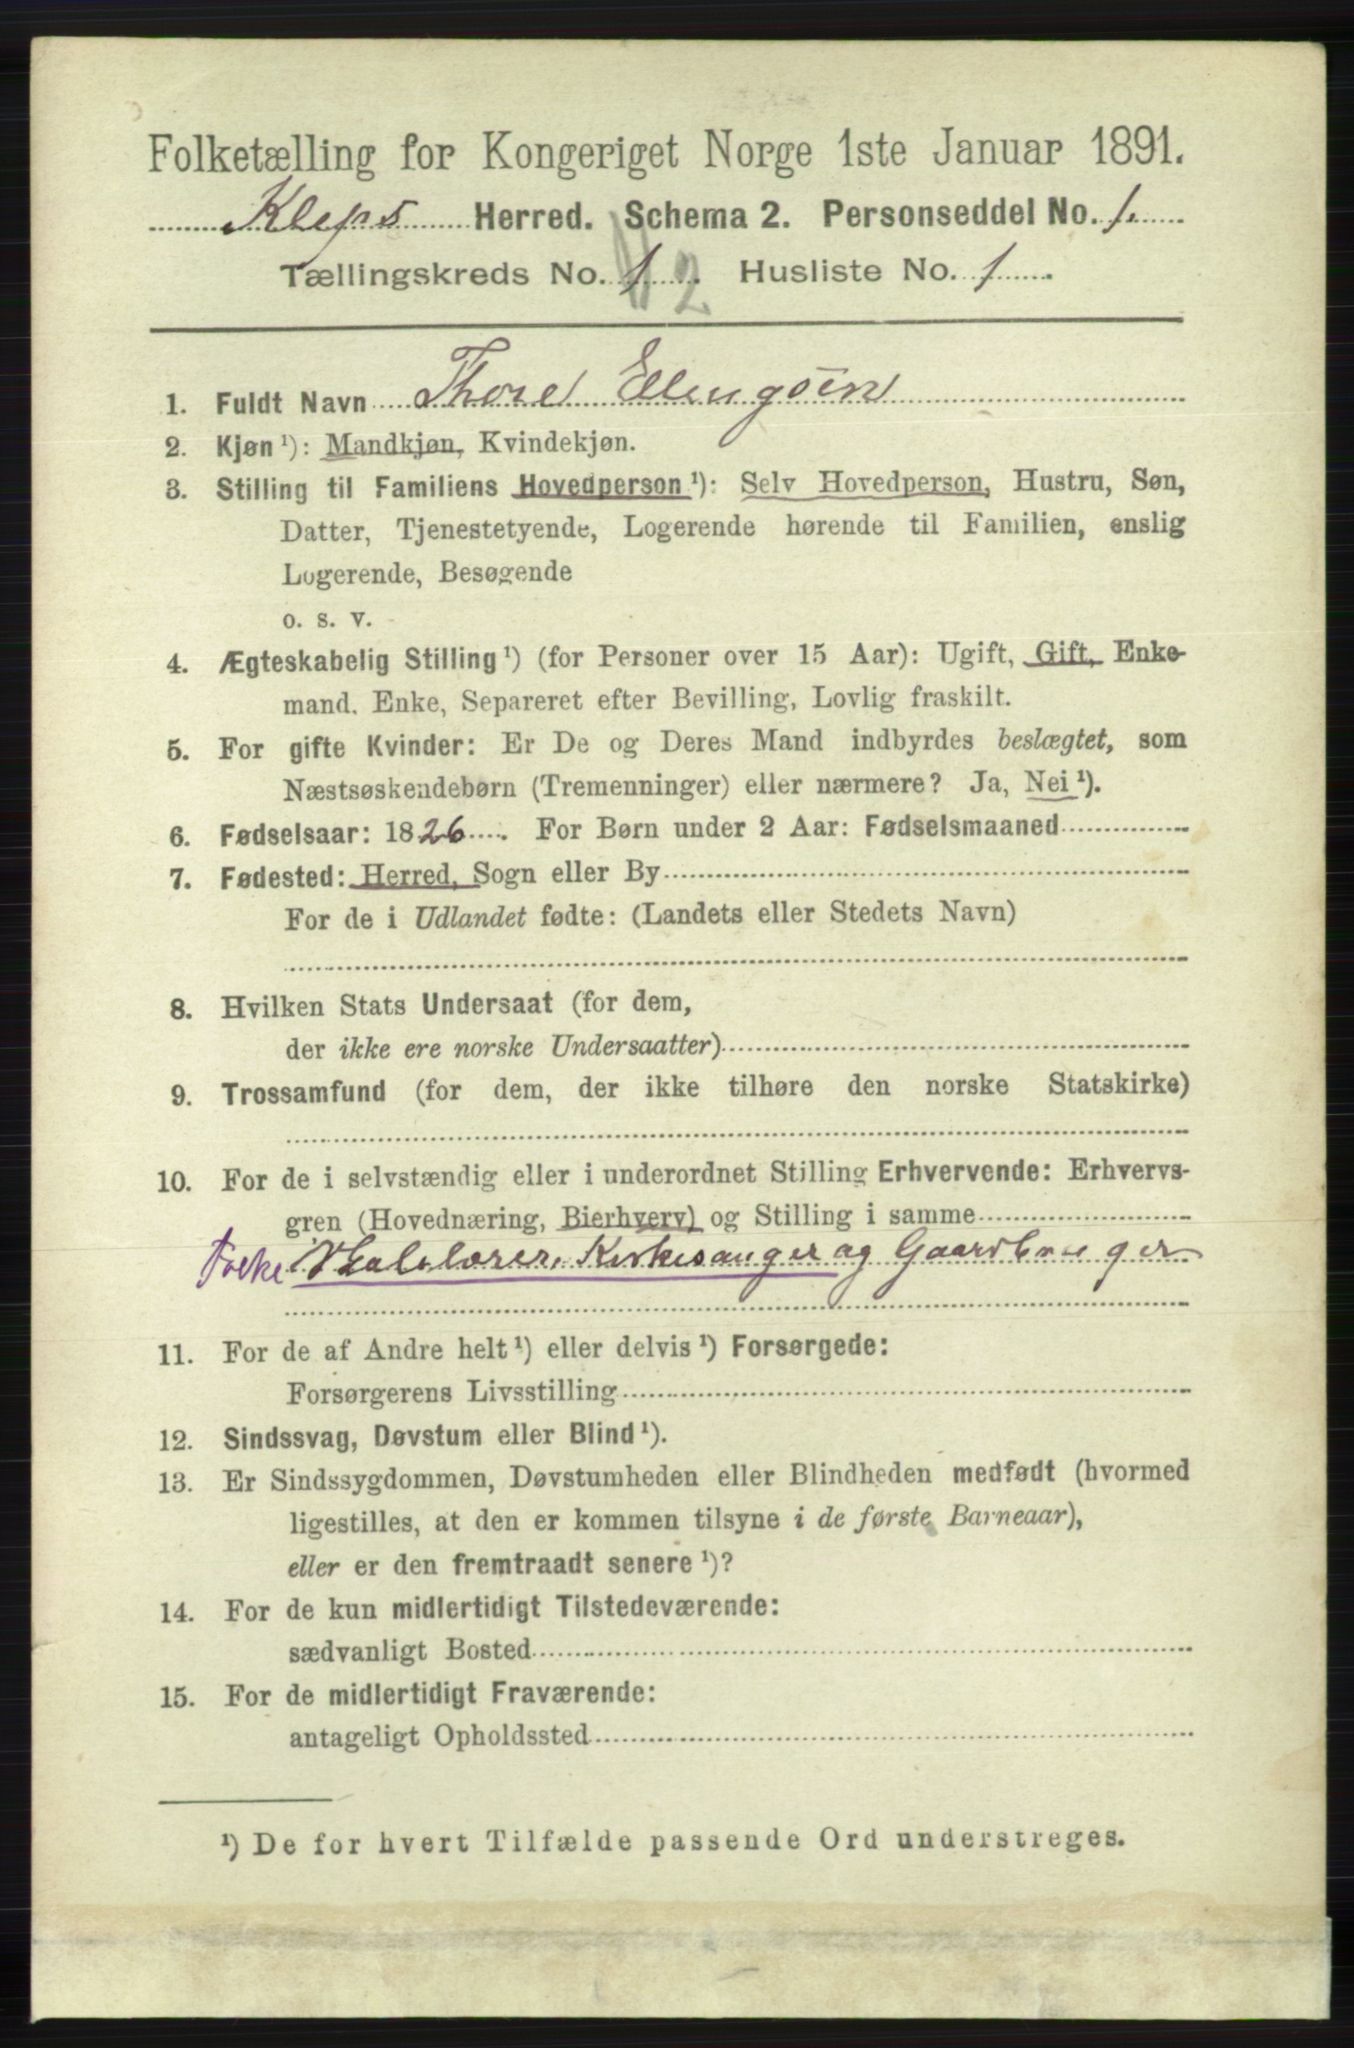 Folketælling for Kongeriget Norge 1ste Januar 1891.
Kleps Herred. Schema 2. Personseddel No. 1.
Tællingskreds No. 1. Husliste No. 1
2
1. Fuldt Navn Thore Ellingsen
2. Kjøn ¹): Mandkjøn, Kvindekjøn.
3. Stilling til Familiens Hovedperson ¹): Selv Hovedperson, Hustru, Søn,
Datter, Tjenestetyende, Logerende hørende til Familien, enslig
Logerende, Besøgende
o. s. v.
4. Ægteskabelig Stilling ¹) (for Personer over 15 Aar): Ugift, Gift, Enke-
mand. Enke, Separeret efter Bevilling, Lovlig fraskilt.
5. For gifte Kvinder: Er De og Deres Mand indbyrdes beslægtet, som
Næstsøskendebørn (Tremenninger) eller nærmere? Ja, Nei ¹).
6. Fødselsaar: 1826. For Børn under 2 Aar: Fødselsmaaned
7. Fødested: Herred, Sogn eller By
For de i Udlandet fødte: (Landets eller Stedets Navn)
8. Hvilken Stats Undersaat (for dem,
der ikke ere norske Undersaatter)
9. Trossamfund (for dem, der ikke tilhøre den norske Statskirke)
10. For de i selvstændig eller i underordnet Stilling Erhvervende: Erhvervs-
gren (Hovednæring, Bierhverv) og Stilling i samme
Folke Skolelærer, Kirkesanger og Gaardbruger
11. For de af Andre helt ¹) eller delvis ¹) Forsørgede:
Forsørgerens Livsstilling
12. Sindssvag, Døvstum eller Blind ¹).
13. Er Sindssygdommen, Døvstumheden eller Blindheden medfødt (hvormed
ligestilles, at den er kommen tilsyne i de første Barneaar),
eller er den fremtraadt senere ¹)?
14. For de kun midlertidigt Tilstedeværende:
sædvanligt Bosted
15. For de midlertidigt Fraværende:
antageligt Opholdssted
¹) De for hvert Tilfælde passende Ord understreges.